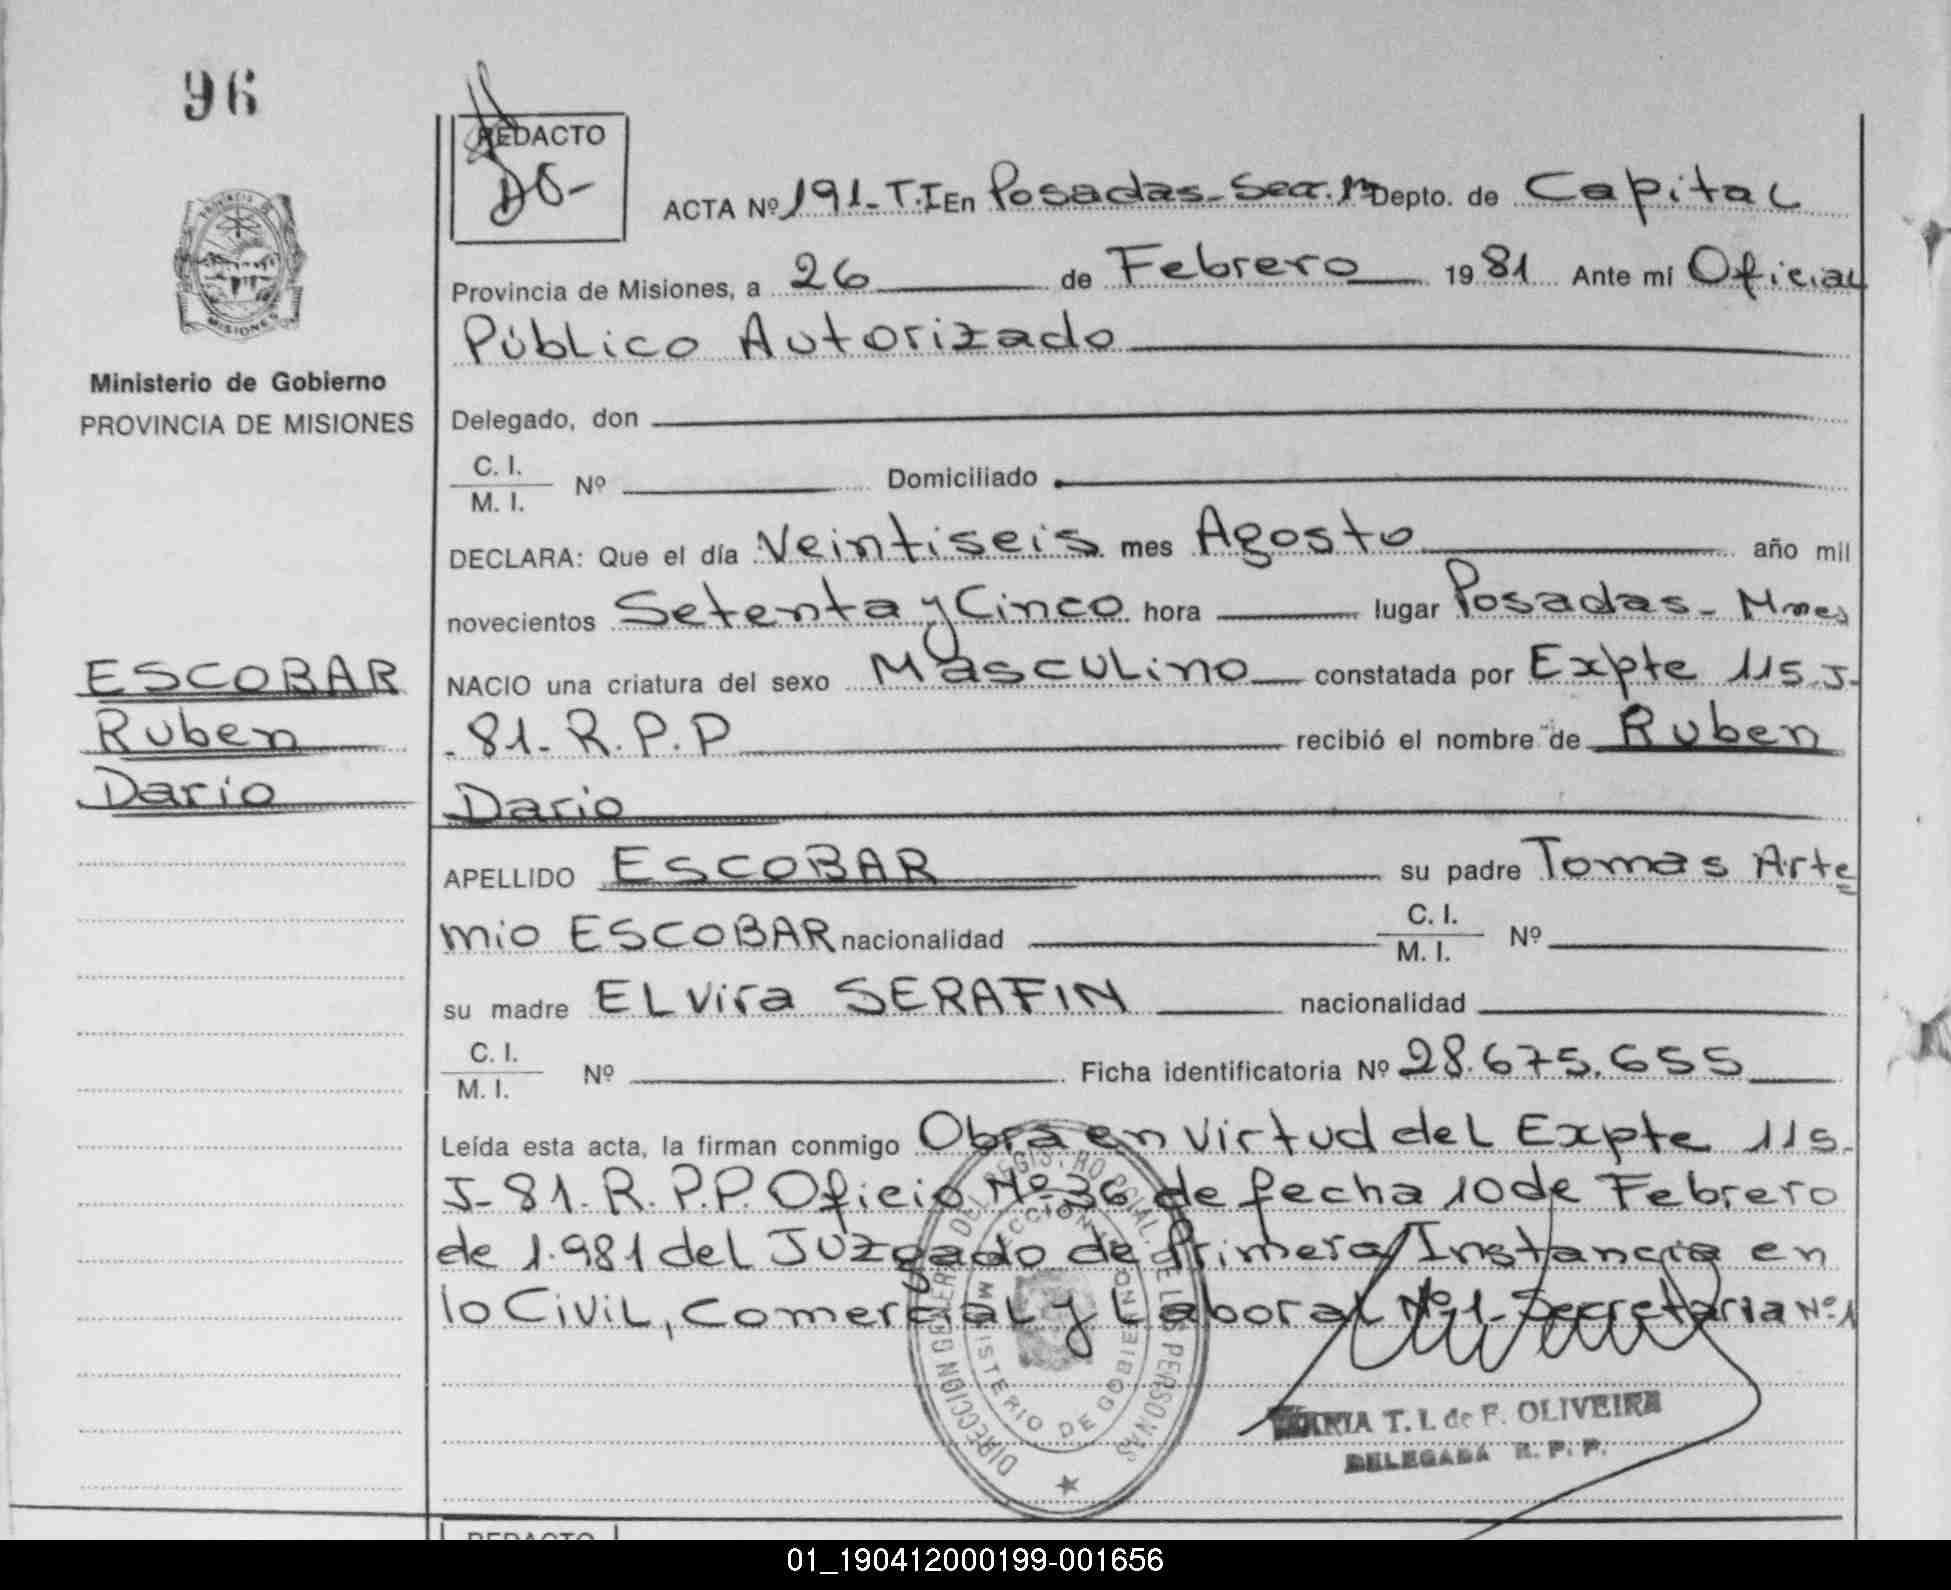 96
REDACTO
ACTA Nº 191-T.I En Posadas-Secc. 1ª Depto. de Capital
Provincia de Misiones, a 26 de Febrero 1981 Ante mí Oficial
Público Autorizado
MISIONES
Ministerio de Gobierno
PROVINCIA DE MISIONES
Delegado, don
C. I.
M. I. Nº Domiciliado
DECLARA: Que el día Veintiseis mes Agosto año mil
novecientos Setenta y Cinco hora lugar Posadas - Mnes
ESCOBAR
Ruben
Dario
NACIO una criatura del sexo Masculino constatada por Expte 115.J-
-81- R.P.P recibió el nombre de Ruben
Dario
APELLIDO ESCOBAR su padre Tomas Arte
mio ESCOBAR nacionalidad C. I. M. I. Nº
su madre ELvira SERAFIN nacionalidad
C. I.
M. I. Nº Ficha identificatoria Nº 28.675.655
Leída esta acta, la firman conmigo Obra en virtud del Expte 115-
J-81-R.P.P. Oficio Nº 36 de fecha 10 de Febrero
de 1.981 del Juzgado de Primera Instancia en
lo Civil, Comercial y Laboral Nº 1- Secretaria Nº 1
DIRECCION GENERAL DEL REGISTRO PCIAL. DE LAS PERSONAS
MINISTERIO DE GOBIERNO
MARIA T. I. de F. OLIVEIRA
DELEGADA R. P. P.
REDACTO
01_190412000199-001656